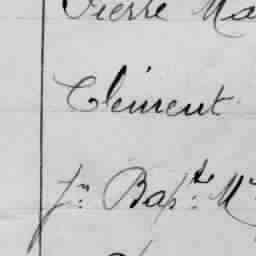 Pierre Ma
Clément
Jn Bapte M